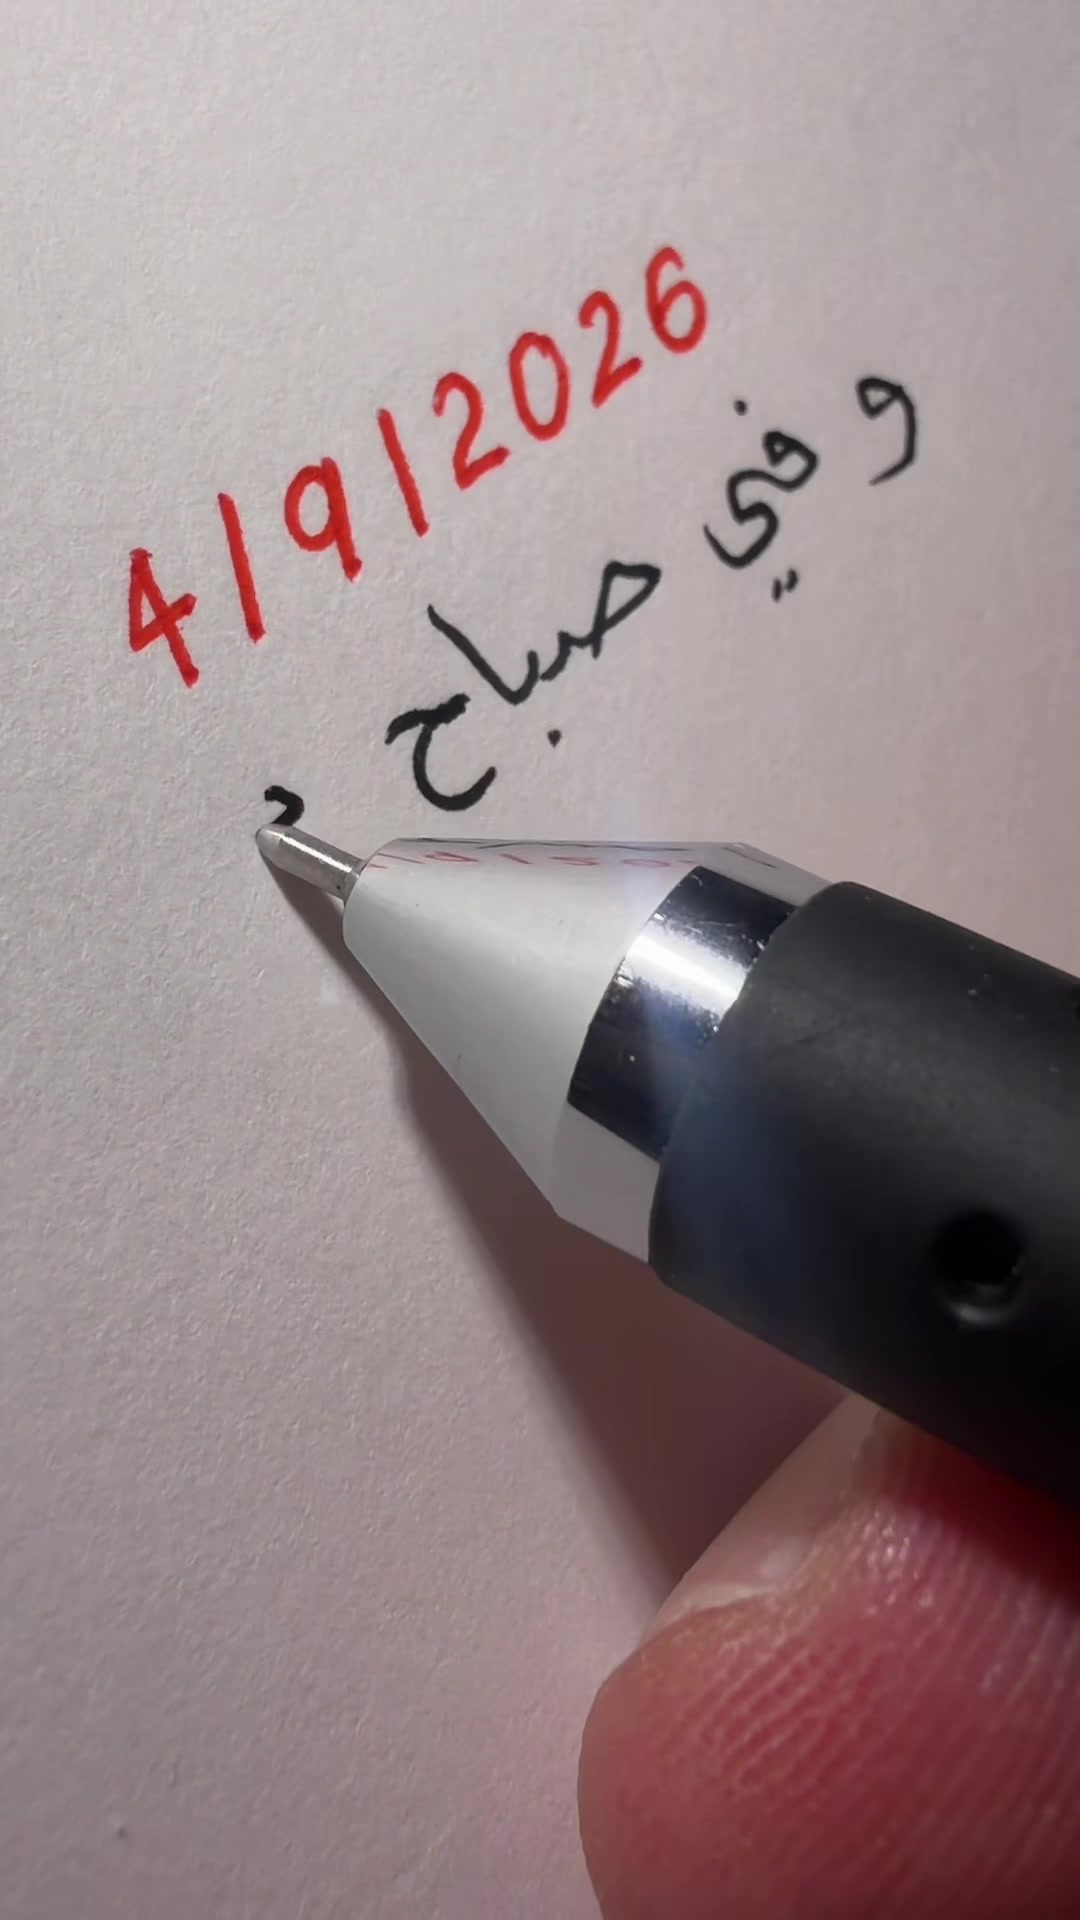 4/9/2026
و في صباح